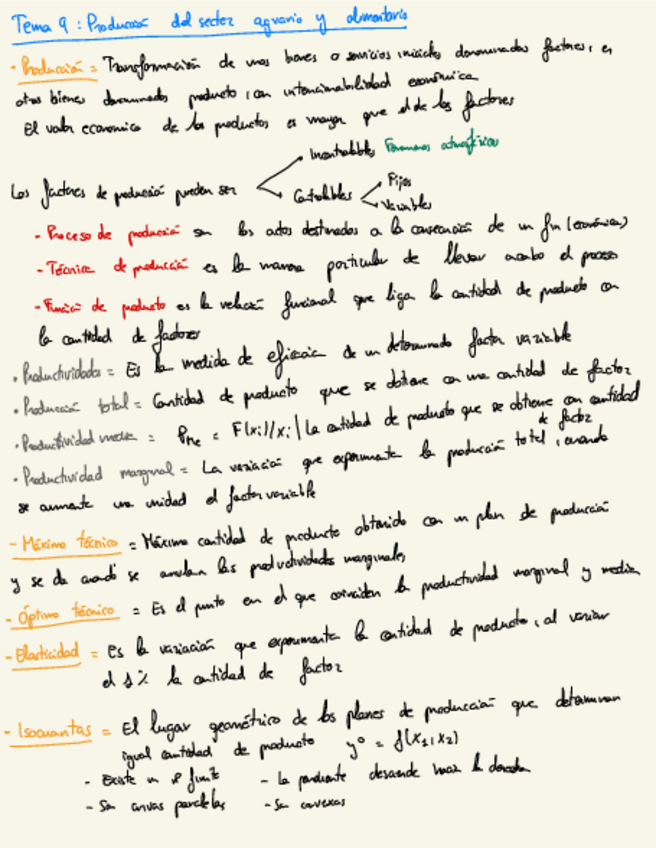 Tema 9: Producción del sector agrario y alimentario
- Producción = Transformación de unos bienes o servicios iniciales denominados factores, en
otros bienes denominados producto, con intencionabilidad económica
El valor economico de los productos es mayor que el de los factores
Incontrolables Fenomenos atmosféricos
Los factores de producción pueden ser
Controlables
Fijos
Variables
- Proceso de producción son los actos destinados a la consecución de un fin (económico)
- Técnica de producción es la manera particular de llevar acabo el proceso
- Función de producto es la relación funcional que liga la cantidad de producto con
la cantidad de factores
· Productividad = Es la medida de eficacia de un determinado factor variable
· Producción total = Cantidad de producto que se obtiene con una cantidad de factor
· Productividad media = Pme = F(xi)/xi | La cantidad de producto que se obtiene con cantidad
de factor
· Productividad marginal = La variación que experimenta la producción total, cuando
se aumenta una unidad el factor variable
- Máximo técnico = Máxima cantidad de producto obtenido con un plan de producción
y se da cuando se anulan las productividades marginales
- Óptimo técnico = Es el punto en el que coinciden la productividad marginal y media
- Elasticidad = Es la variación que experimenta la cantidad de producto, al variar
el 1% la cantidad de factor
- Isocuantas = El lugar geométrico de los planes de producción que determinan
igual cantidad de producto y° = f(x1,x2)
- Existe un nº finito - La pendiente desciende hacia la derecha
- Son curvas paralelas - Son convexas